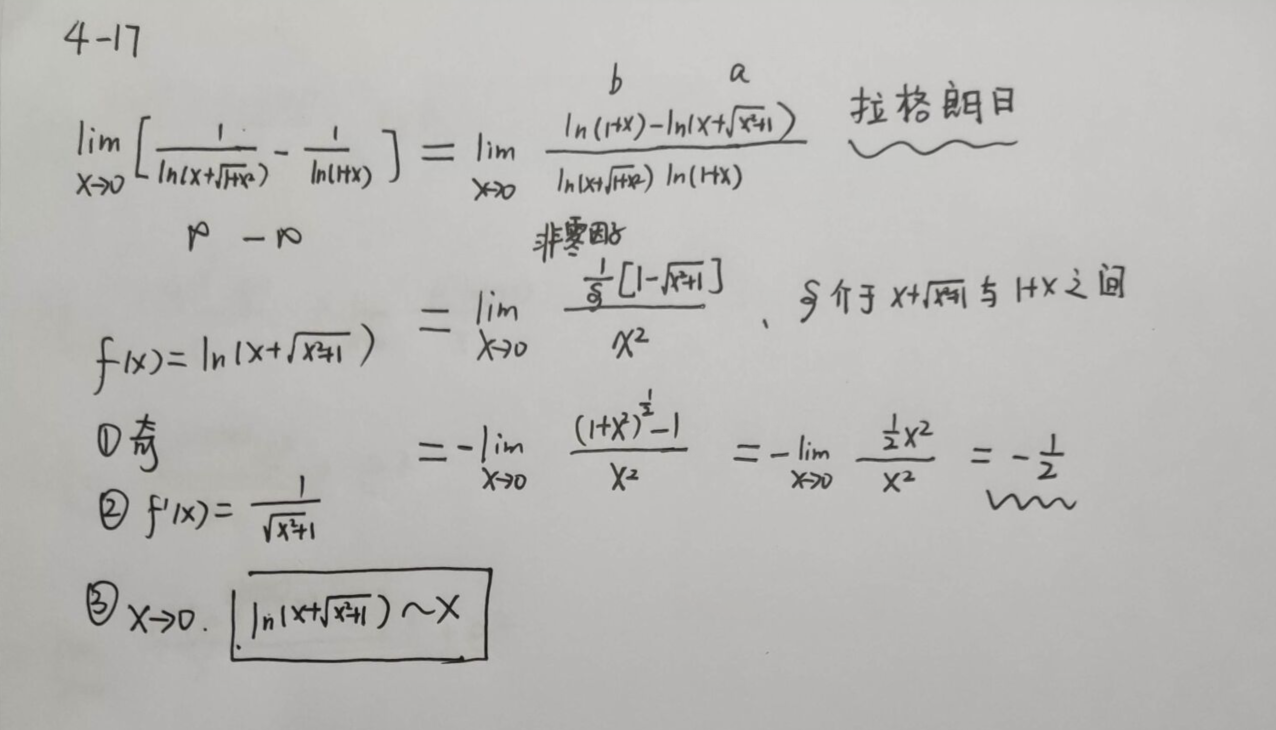 4-17
b a
lim x→0 [ 1/ln(x+√(1+x²)) - 1/ln(1+x) ] = lim x→0 (ln(1+x)-ln(x+√(x²+1)))/(ln(x+√(1+x²)) ln(1+x)) 拉格朗日
∞ - ∞
非零因子
= lim x→0 (1/ξ [1-√(x²+1)])/x² 、 ξ介于 x+√(x²+1) 与 1+x 之间
f(x) = ln(x+√(x²+1))
① 奇
= -lim x→0 ((1+x²)^(1/2) -1)/x² = -lim x→0 (1/2 x²)/x² = -1/2
② f'(x) = 1/√(x²+1)
③ x→0. ln(x+√(x²+1)) ~ x